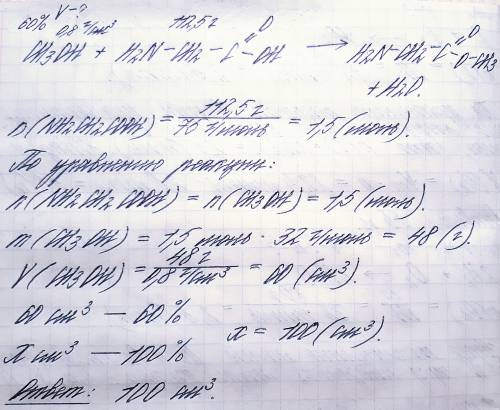 60% V-? 112,5 г O
0,8 г/см³ //
CH₃OH + H₂N-CH₂-C-OH → H₂N-CH₂-C-O-CH₃
+ H₂O.
n(NH₂CH₂COOH) = 112,5 г / 75 г/моль = 1,5 (моль).
По уравнению реакции:
n(NH₂CH₂COOH) = n(CH₃OH) = 1,5 (моль).
m(CH₃OH) = 1,5 моль · 32 г/моль = 48 (г).
V(CH₃OH) = 48 г / 0,8 г/см³ = 60 (см³).
60 см³ — 60%
x см³ — 100% x = 100 (см³).
Ответ: 100 см³.